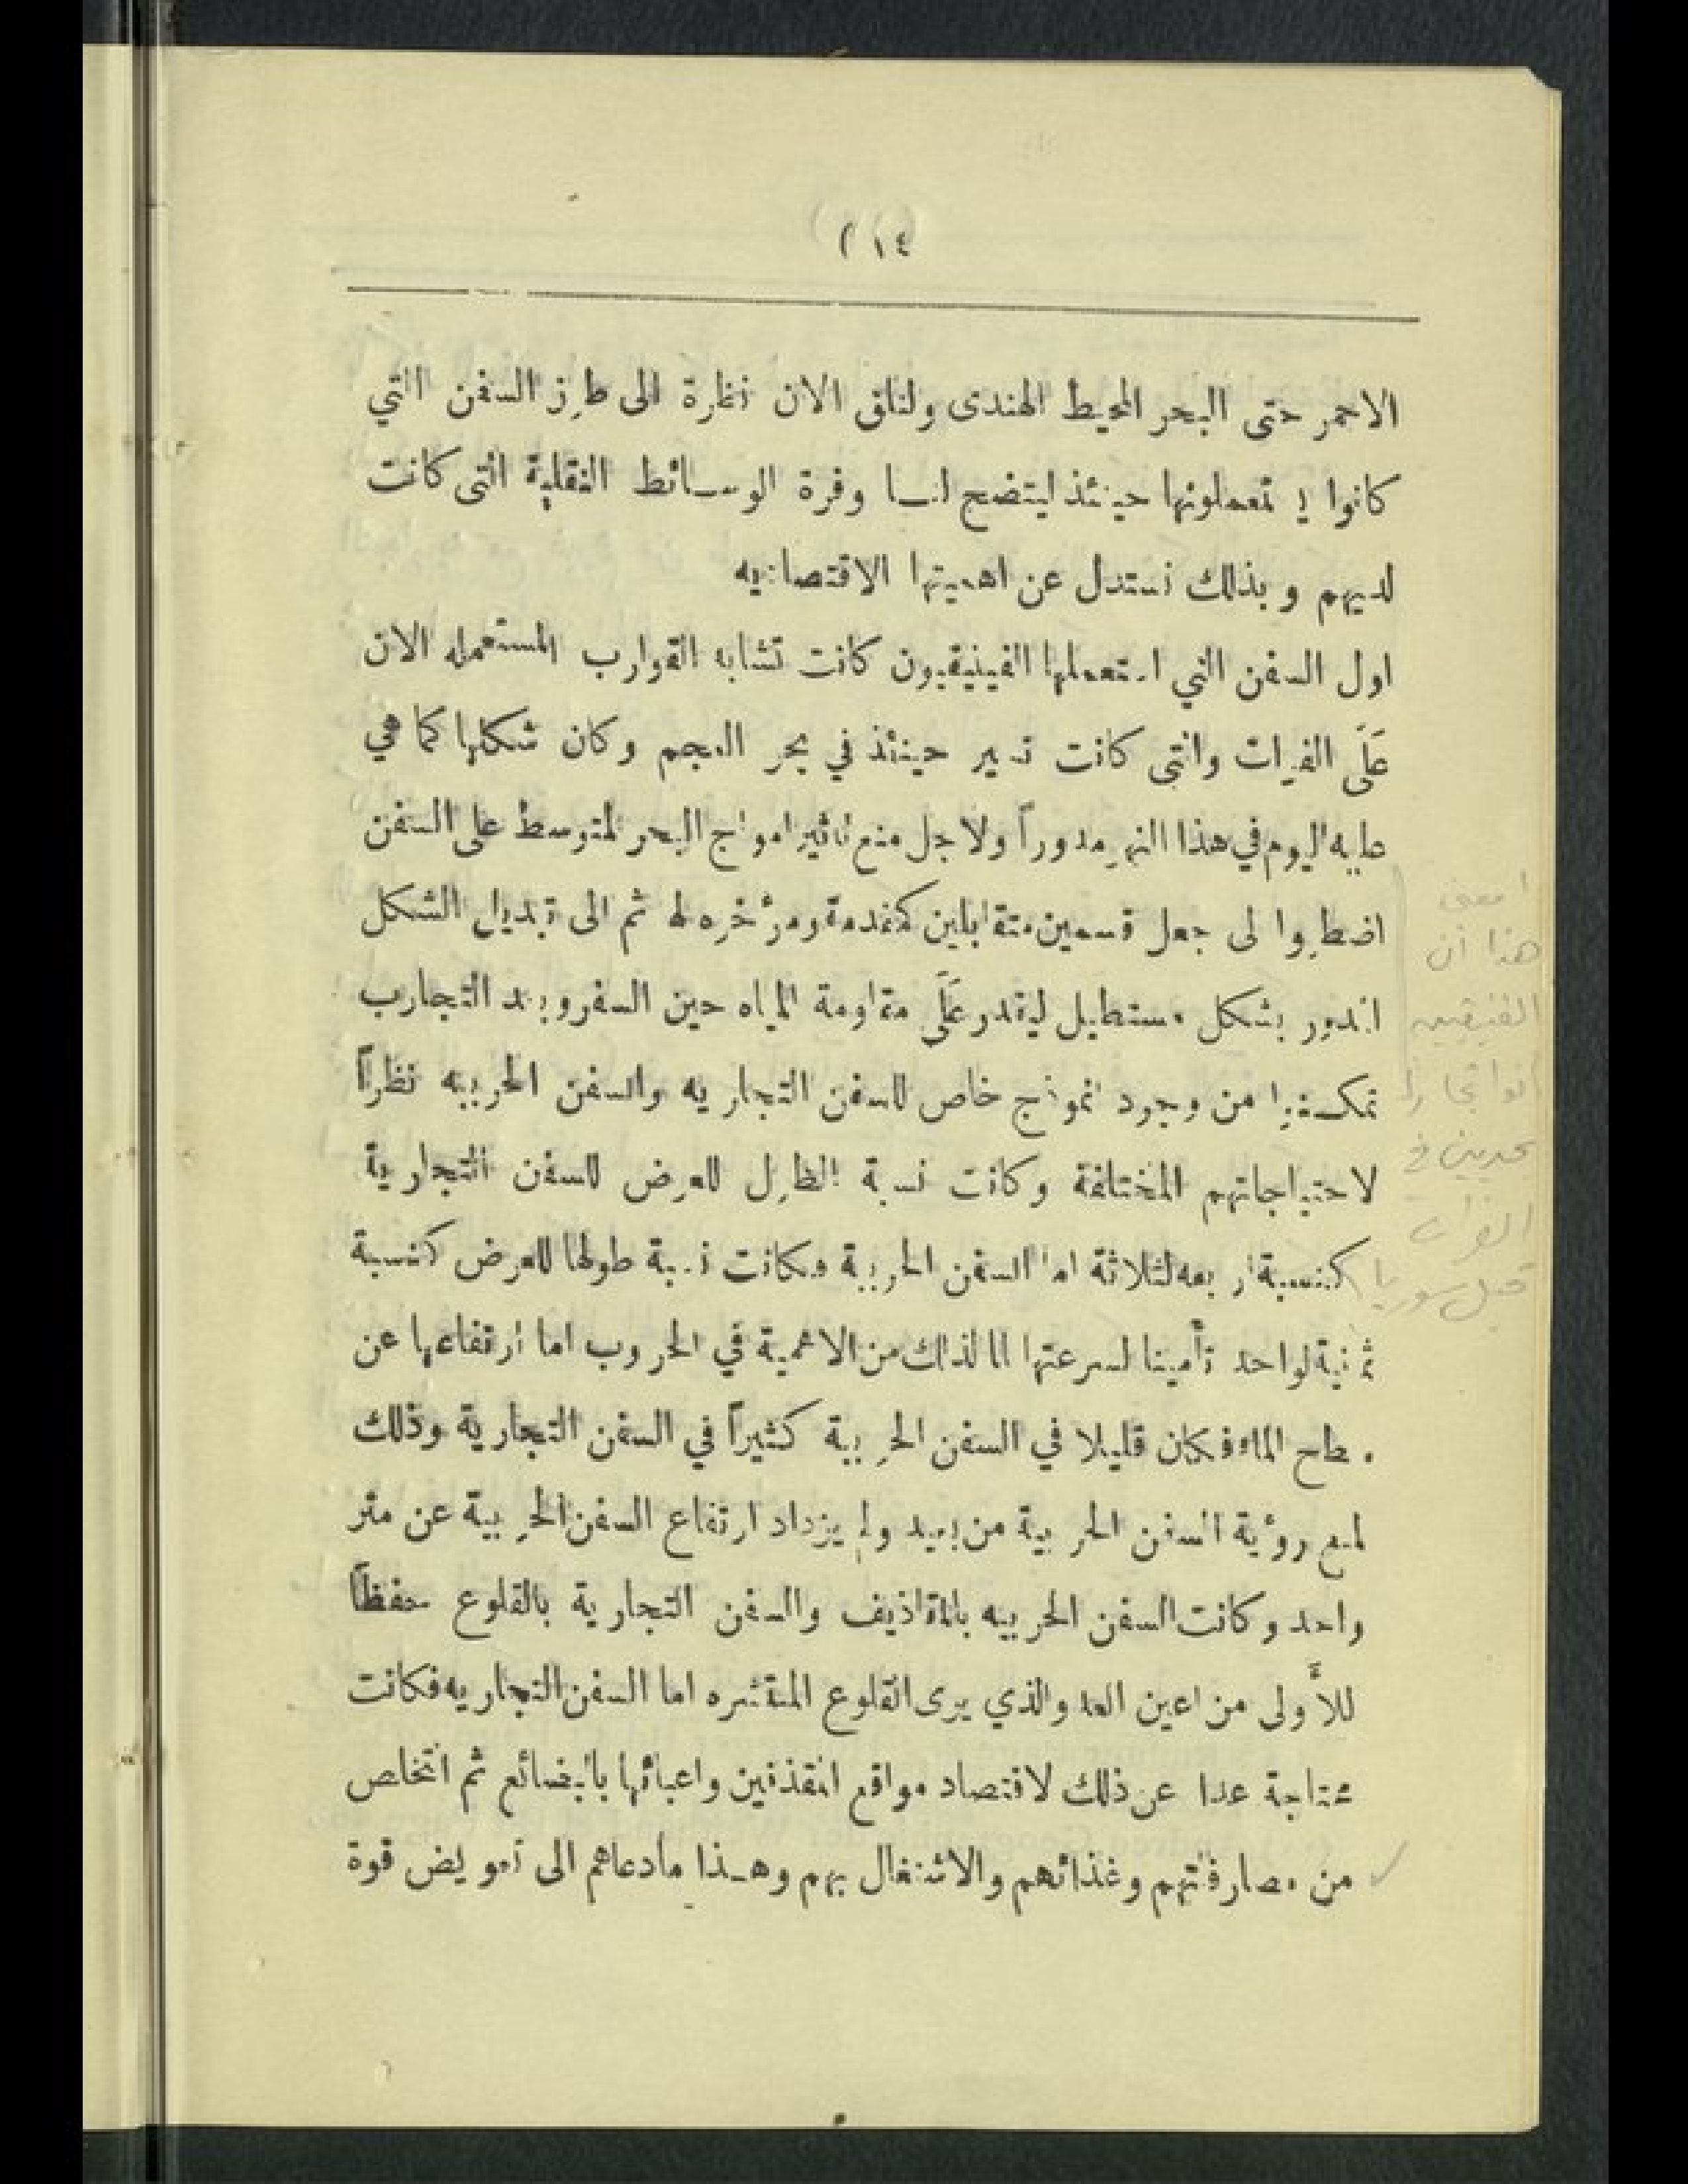 ( ١٤
الاحمر حتى البحر المحيط الهندى ولنلق الان نظرة الى طرز السفن التي
كانوا يستعملونها حينئذ ليتضح لنا وفرة الوسائط النقلية التى كانت
لديهم وبذلك نستدل عن اهميتها الاقتصاديه
اول السفن التي استعملها الفينيقيون كانت تشابه القوارب المستعمله الان
عَلَى الفرات والتى كانت تسير حينئذ في بحر العجم وكان شكلها كما هي
عليه اليوم في هذا النهر مدوراً ولاجل منع تاثير امواج البحر المتوسط على السفن
اضطروا الى جعل قسمين متقابلين كمقدمة ومؤخره لها ثم الى تبديل الشكل
المدور بشكل مستطيل ليقدر عَلَى مقاومة المياه حين السفر وبعد التجارب
تمكنوا من وجود انموذج خاص للسفن التجاريه والسفن الحربيه نظراً
لاحتياجاتهم المختلفة وكانت نسبة الطول للعرض للسفن التجارية
كنسبة اربعه لثلاثة اما السفن الحربية فكانت نسبة طولها للعرض كنسبة
ثمانية لواحد تأمينا لسرعتها لما لذلك من الاهمية في الحروب اما ارتفاعها عن
سطح الماء فكان قليلا في السفن الحربية كثيراً في السفن التجارية وذلك
لمنع رؤية السفن الحربية من بعيد ولم يزداد ارتفاع السفن الحربية عن متر
واحد وكانت السفن الحربيه بالمقاذيف والسفن التجارية بالقلوع حفظاً
للأولى من اعين العدو الذي يرى القلوع المنتشره اما السفن التجاريه فكانت
محتاجة عدا عن ذلك لاقتصاد مواقع المقذفين واعبائها بالبضائع ثم التخلص
من مصارفاتهم وغذائهم والاشتغال بهم وهـذا مادعاهم الى تعويض قوة
معنى
هذا ان
الفينيقيين
كانوا تجارا
بحريين في
الفرات
قبل سوريا